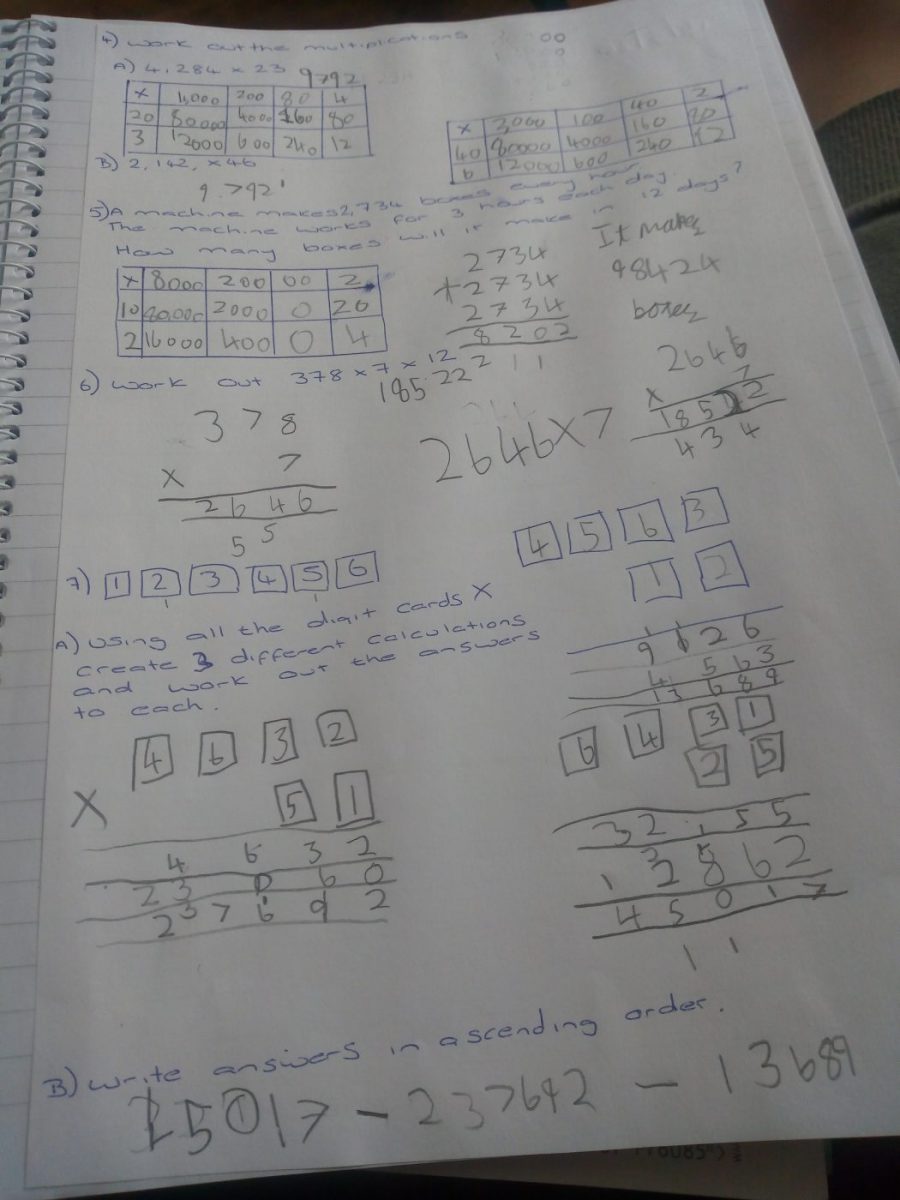 4) work out the multiplications
A) 4,284 x 23 9792
x 4,000 200 80 4
20 80000 4000 160 80
3 12000 600 240 12
x 2,000 100 40 2
40 80000 4000 160 80
6 12000 600 240 12
B) 2,142, x 46
9792
5) A machine makes 2,734 boxes every hour.
The machine works for 3 hours each day.
How many boxes will it make in 12 days?
x 8000 200 00 2
10 80,000 2000 0 20
2 16000 400 0 4
2734
+2734
2734
8202
11
It makes
98424
boxes
6) work out 378 x 7 x 12
185222
378
x 7
2646
55
2646x7
2646
x 7
18522
434
7) 1 2 3 4 5 6
A) using all the digit cards x
create 3 different calculations
and work out the answers
to each.
4 5 6 3
1 2
9126
4563
13689
4 6 3 2
x 5 1
4632
23 0 60
237692
6 4 3 1
2 5
32155
12862
45017
11
B) write answers in ascending order.
45017 - 237692 - 13689